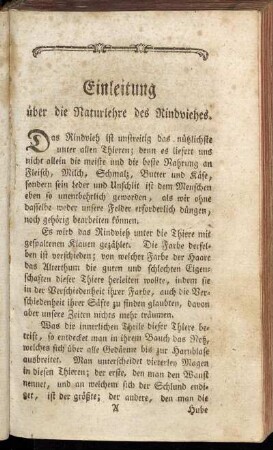 Einleitung
über die Naturlehre des Rindviehes.
Das Rindvieh ist unstreitig das nützlichste
unter allen Thieren; denn es liefert uns
nicht allein die meiste und die beste Nahrung an
Fleisch, Milch, Schmalz, Butter und Käse,
sondern sein Leder und Unschlit ist dem Menschen
eben so unentbehrlich geworden, als wir ohne
dasselbe weder unsere Felder erforderlich düngen,
noch gehörig bearbeiten können.
Es wird das Rindvieh unter die Thiere mit
gespaltenen Klauen gezählet. Die Farbe dersel-
ben ist verschieden; von welcher Farbe der Haare
das Alterthum die guten und schlechten Eigen-
schaften dieser Thiere herleiten wollte, indem sie
in der Verschiedenheit ihrer Farbe, auch die Ver-
schiedenheit ihrer Säfte zu finden glaubten, davon
aber unsere Zeiten nichts mehr träumen.
Was die innerlichen Theile dieser Thiere be-
trift, so entdecket man in ihrem Bauch das Netz,
welches sich über alle Gedärme bis zur Harnblase
ausbreitet. Man unterscheidet viererley Magen
in diesen Thieren; der erste, den man den Wanst
nennet, und an welchem sich der Schlund endi-
get, ist der größte; der andere, den man die
A Hube